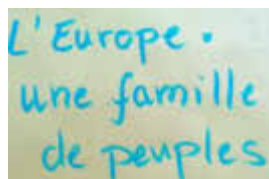 L'Europe.
une famille
de peuples